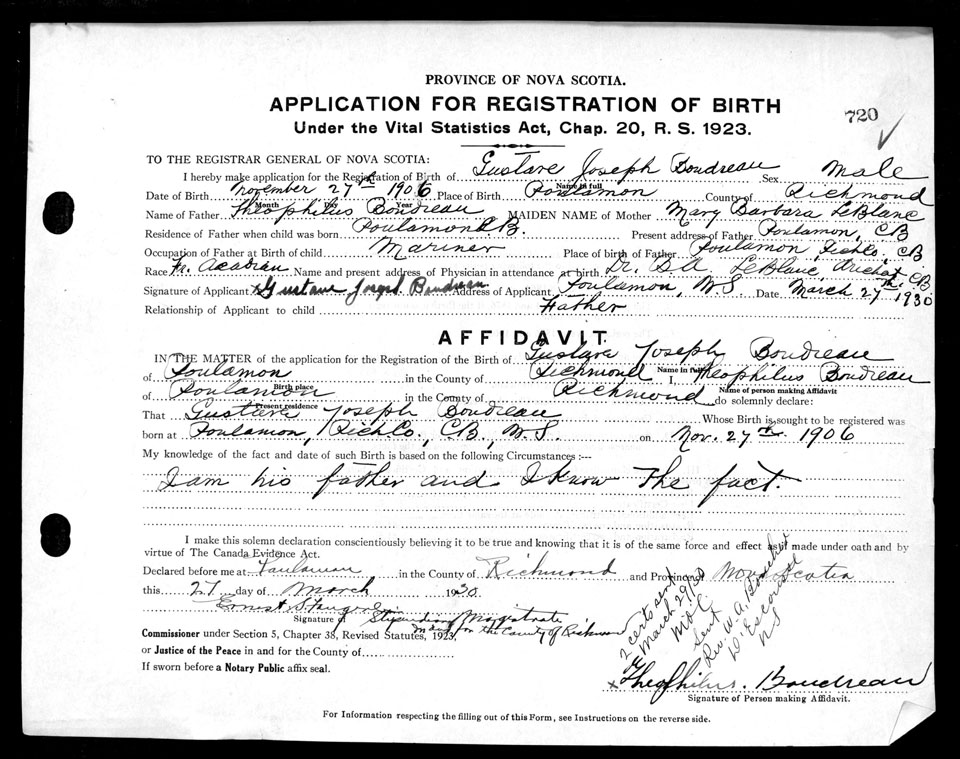 PROVINCE OF NOVA SCOTIA.
APPLICATION FOR REGISTRATION OF BIRTH
720
Under the Vital Statistics Act, Chap. 20, R. S. 1923.
TO THE REGISTRAR GENERAL OF NOVA SCOTIA:
I hereby make application for the Registration of Birth of Gustave Joseph Boudreau Sex Male
Name in full
Date of Birth November 27th 1906 Place of Birth Poulamon County of Richmond
Month Day Year
Name of Father Theophilus Boudreau MAIDEN NAME of Mother Mary Barbara LeBlanc
Residence of Father when child was born Poulamon C.B. Present address of Father Poulamon, CB
Occupation of Father at Birth of child Mariner Place of birth of Father Poulamon, Rich.Co., CB
Race Fr. Acadian Name and present address of Physician in attendance at birth. Dr. B A LeBlanc, Arichat, CB.
Signature of Applicant x Gustave Joseph Boudreau Address of Applicant Poulamon, N.S. Date March 27th 1930
Relationship of Applicant to child Father
AFFIDAVIT
IN THE MATTER of the application for the Registration of the Birth of Gustave Joseph Boudreau
Name in full
of Poulamon in the County of Richmond I, Theophilus Boudreau
Birth place Name of person making Affidavit
of Poulamon in the County of Richmond do solemnly declare:
Present residence
That Gustave Joseph Boudreau Whose Birth is sought to be registered was
born at Poulamon, Rich.Co., C.B., N.S. on Nov. 27th 1906
My knowledge of the fact and date of such Birth is based on the following Circumstances :---
I am his father and I know the fact.
I make this solemn declaration conscientiously believing it to be true and knowing that it is of the same force and effect as if made under oath and by
virtue of The Canada Evidence Act.
Declared before me at Poulamon in the County of Richmond and Province Nova Scotia
this 27 day of March 1930.
Ernest
Signature of Stipendiary Magistrate
in and for the County of Richmond
Commissioner under Section 5, Chapter 38, Revised Statutes, 1923,
or Justice of the Peace in and for the County of
If sworn before a Notary Public affix seal.
2 certs sent
March 29/30
Sent
Rev. W. A.
D'Escousse
N S
x Theophilus. Boudreau
Signature of Person making Affidavit.
For Information respecting the filling out of this Form, see Instructions on the reverse side.